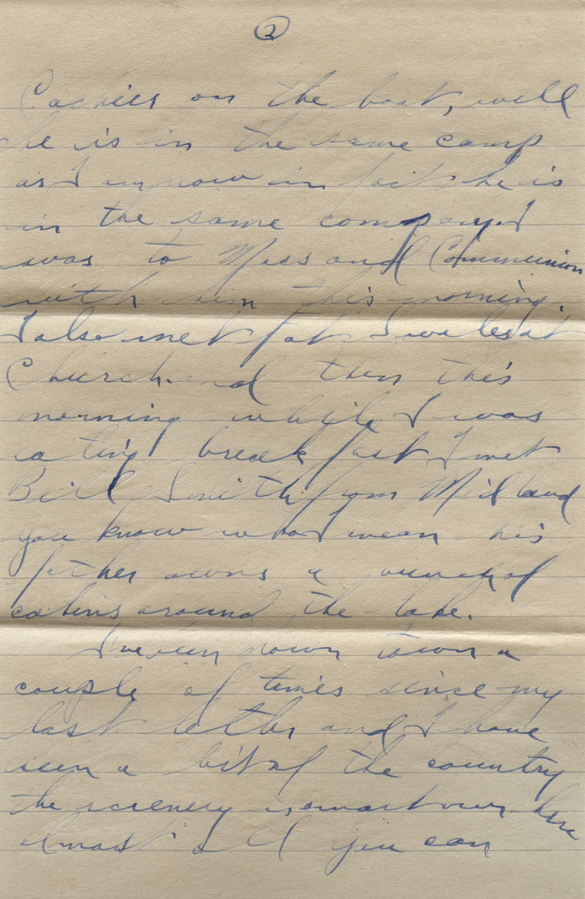 ②
on the boat, well
he is in the same camp
as I am now in fact he is
in the same company. I
was to Mass and Communion
with him this morning.
I also met Pat at
Church. and then this
morning while I was
eating breakfast I met
Bill Smith from Midland
you know who I mean his
father owns a bunch of
cabins around the lake.
I've been down town a
couple of times since my
last letter and I have
seen a bit of the country
the scenery is over here
almost all you can